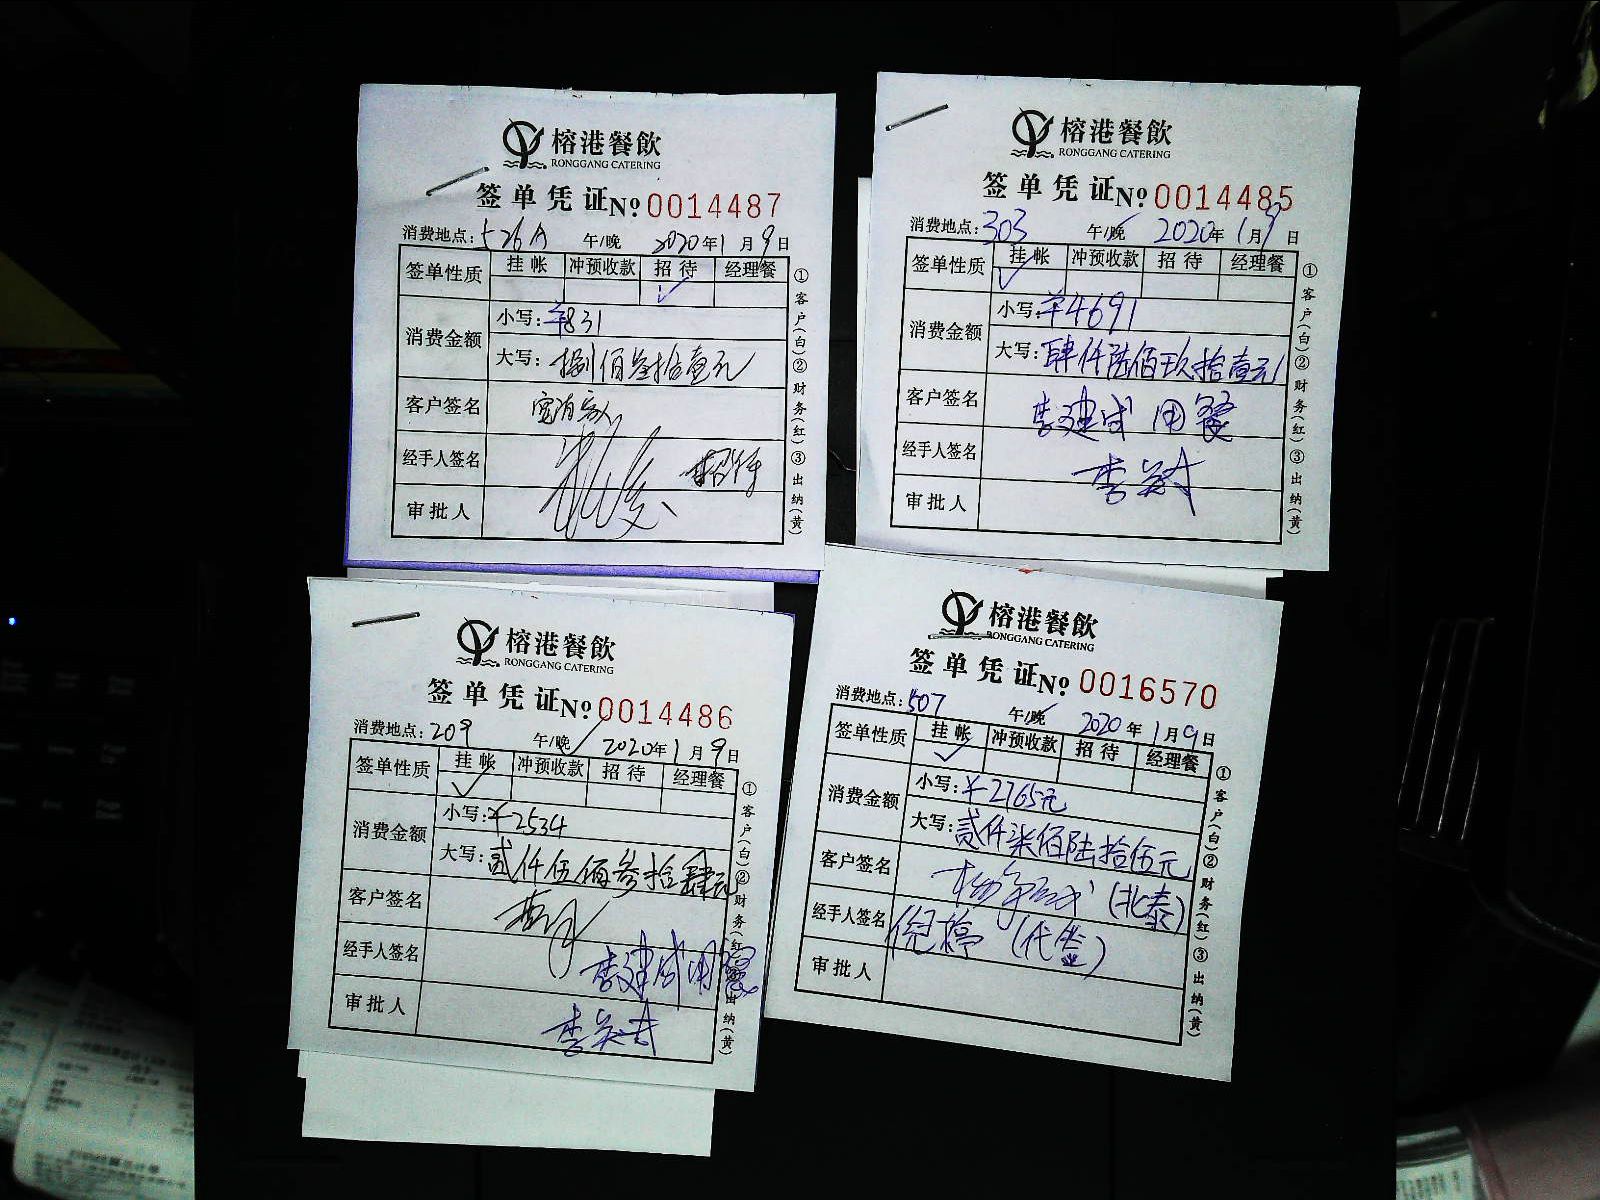 榕港餐飲
RONGGANG CATERING
签单凭证 No 0014487
消费地点: 526A 午/晚 2020年1月9日
签单性质 挂帐 冲预收款 招待 经理餐
消费金额 小写: ¥831
大写: 捌佰叁拾壹元
客户签名
经手人签名 招待
审批人
①客户(白)②财务(红)③出纳(黄)
榕港餐飲
RONGGANG CATERING
签单凭证 No 0014485
消费地点: 303 午/晚 2020年1月9日
签单性质 挂帐 冲预收款 招待 经理餐
消费金额 小写: ¥4691
大写: 肆仟陆佰玖拾壹元
客户签名 李建成 用餐
经手人签名
审批人
①客户(白)②财务(红)③出纳(黄)
榕港餐飲
RONGGANG CATERING
签单凭证 No 0014486
消费地点: 209 午/晚 2020年1月9日
签单性质 挂帐 冲预收款 招待 经理餐
消费金额 小写: ¥2534
大写: 贰仟伍佰叁拾肆元
客户签名
经手人签名 李建成用餐
审批人
①客户(白)②财务(红)③出纳(黄)
榕港餐飲
RONGGANG CATERING
签单凭证 No 0016570
消费地点: 507 午/晚 2020年1月9日
签单性质 挂帐 冲预收款 招待 经理餐
消费金额 小写: ¥2765元
大写: 贰仟柒佰陆拾伍元
客户签名 (北泰)
经手人签名 倪婷 (代签)
审批人
①客户(白)②财务(红)③出纳(黄)